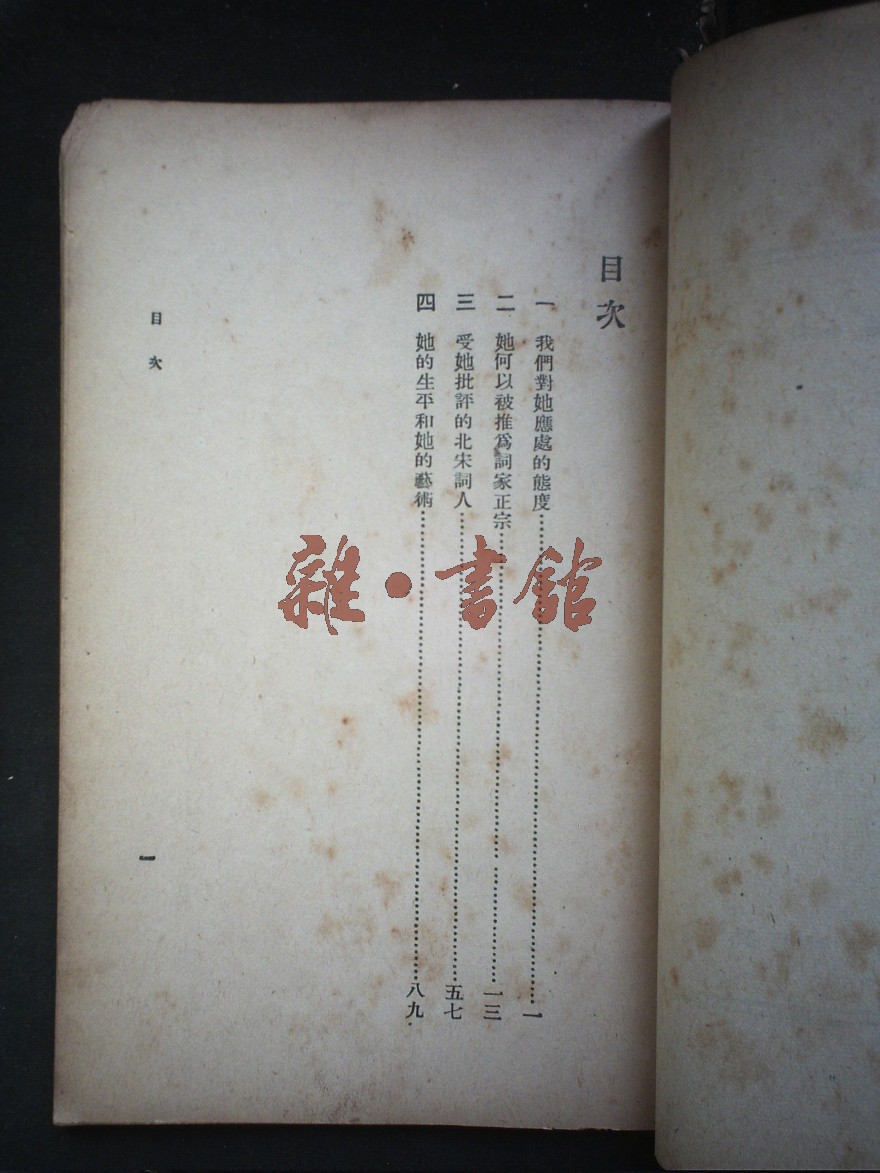 目次
一 我們對她應處的態度……一
二 她何以被推爲詞家正宗……一三
三 受她批評的北宋詞人……五七
四 她的生平和她的藝術……八九
目次
一
雜·書館